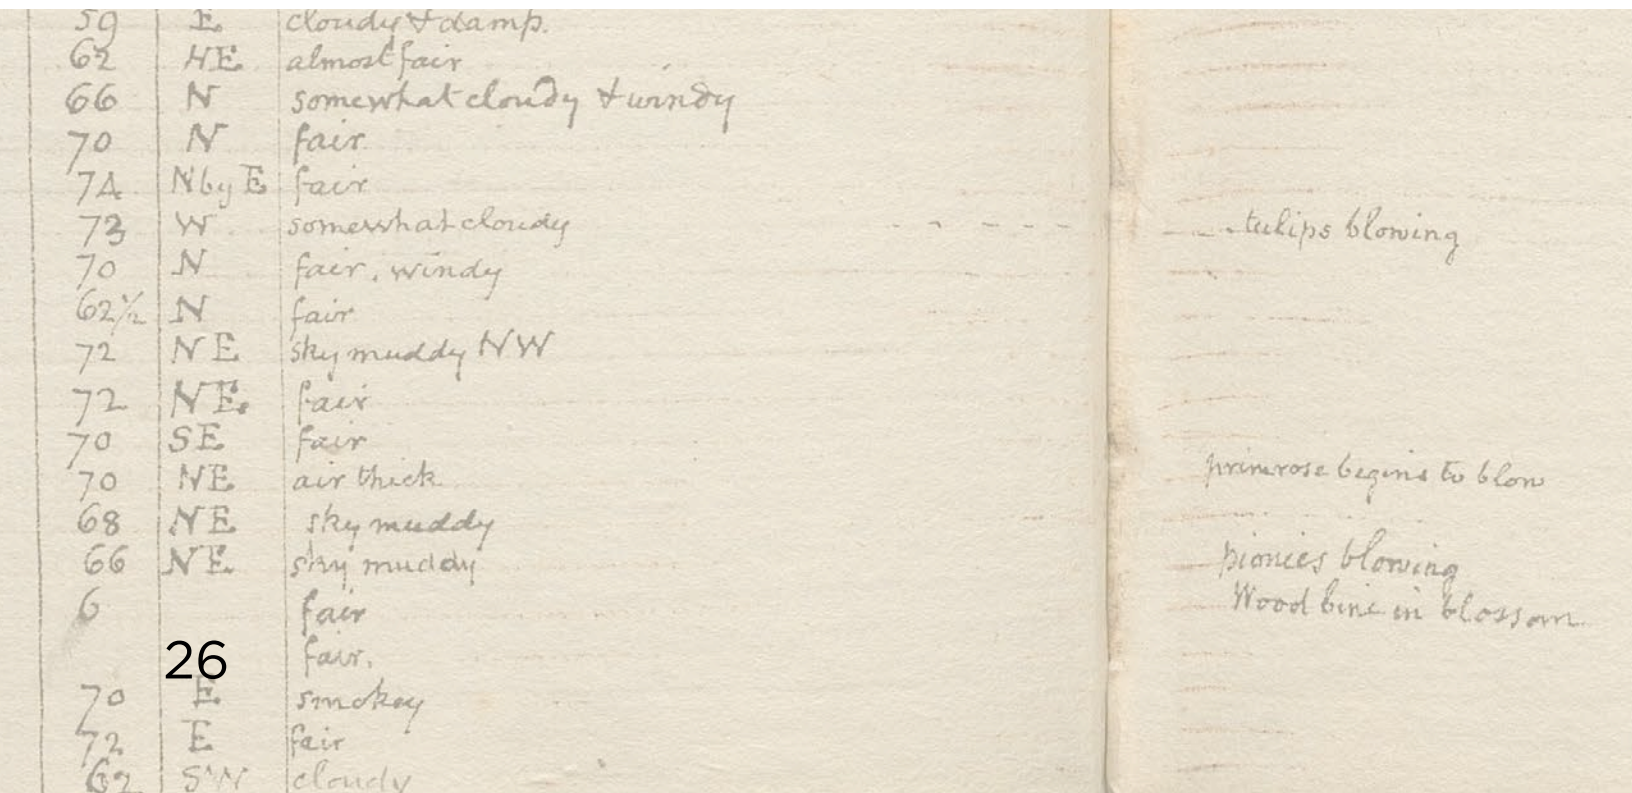 59 E cloudy & damp.
62 NE almost fair
66 N somewhat cloudy & windy
70 N fair.
74 N by E fair
73 W somewhat cloudy - - - - - - tulips blowing
70 N fair. windy
62½ N fair
72 NE sky muddy NW
72 NE. fair
70 SE fair
70 NE air thick primrose begins to blow
68 NE sky muddy
66 NE sky muddy pionies blowing
6 fair Wood bine in blossom
26 fair.
70 E smokey
72 E fair
62 SW cloudy